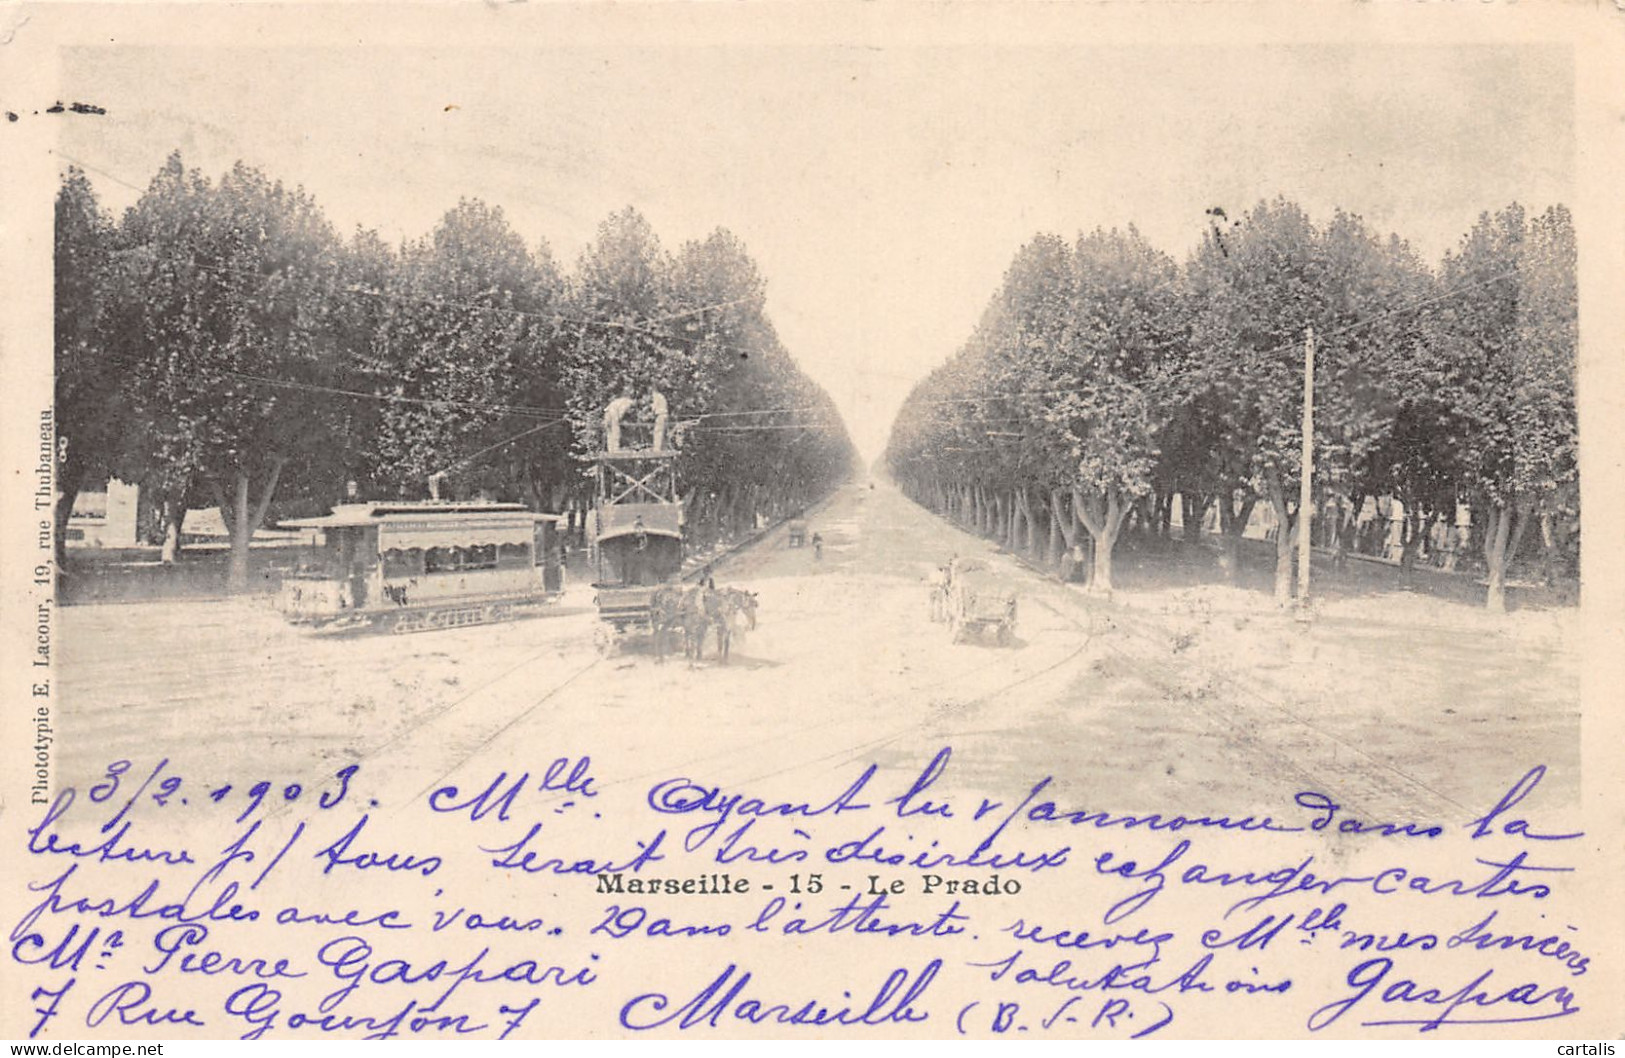 Photototypie E. Lacour, 19, rue Thubaneau.
3/2. 1903. Mlle. Ayant lu v/annonce dans la
lecture p/ tous, serait très désireux echanger cartes
Marseille - 15 - Le Prado
postales avec vous. Dans l'attente. recevez Mlle mes sincères
salutations Gaspari
Mr Pierre Gaspari
7 Rue Gourjon 7 Marseille (B.-d-R.)
cartalis